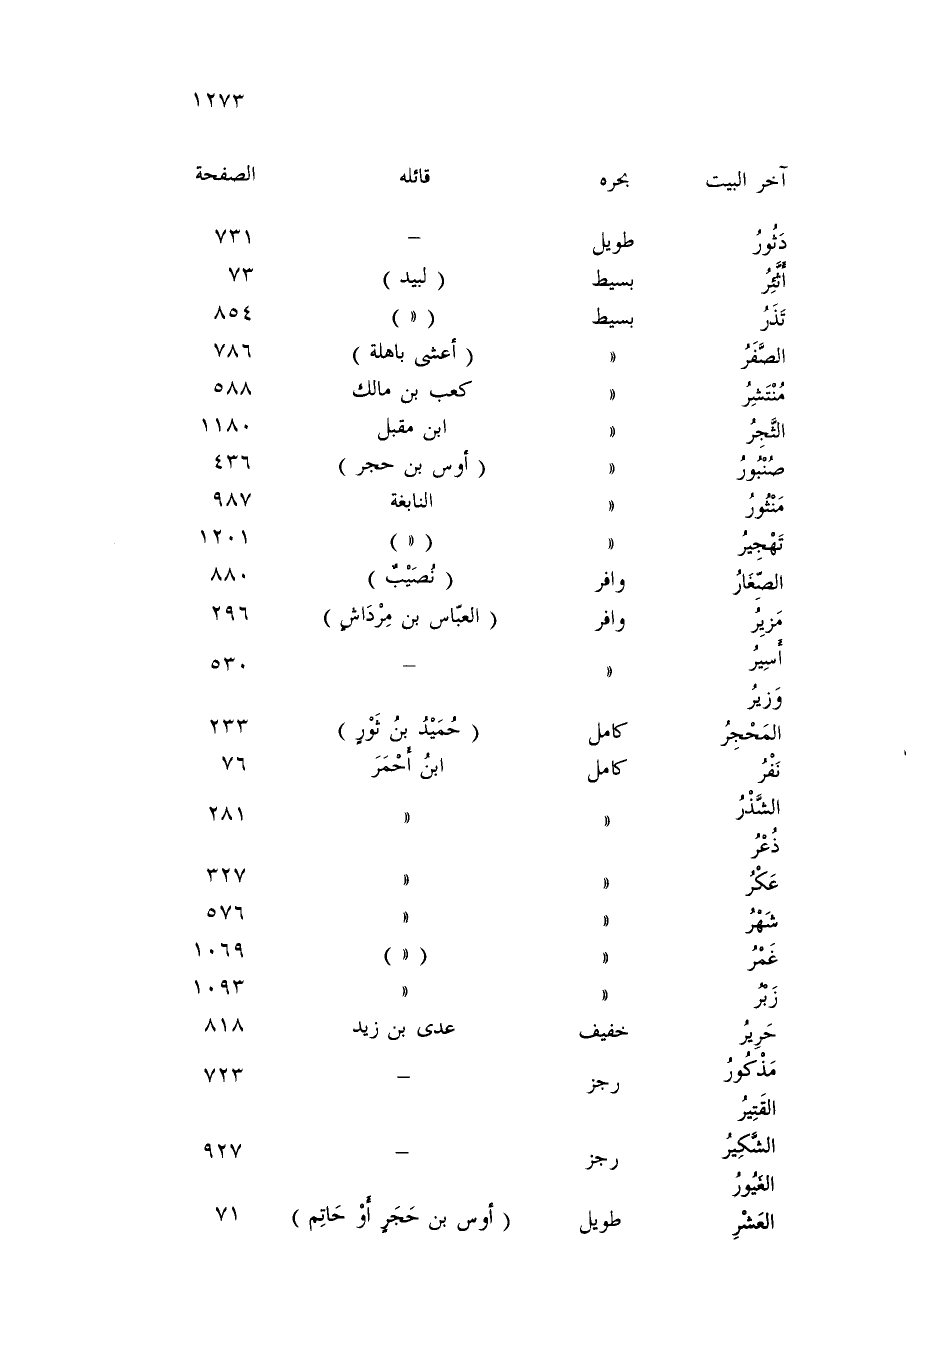 ١٢٧٣
آخر البيت بحره قائله الصفحة
دَثُورُ طويل – ٧٣١
أَثَّئِرُ بسيط ( لبيد ) ٧٣
تَذَرُ بسيط ( « ) ٨٥٤
الصَّفَرُ « ( أعشى باهلة ) ٧٨٦
مُنْتَشِرُ « كعب بن مالك ٥٨٨
الثَّجِرُ « ابن مقبل ١١٨٠
صُنْبُورُ « ( أوس بن حجر ) ٤٣٦
مَنْثُورُ « النابغة ٩٨٧
تَهْجِيرُ « ( « ) ١٢٠١
الصِّغَارُ وافر ( نُصَيْبٌ ) ٨٨٠
مَزِيرُ وافر ( العبّاس بن مِرْدَاسٍ ) ٢٩٦
أَسِيرُ « – ٥٣٠
وَزِيرُ
المَحْجِرُ كامل ( حُمَيْدُ بنُ ثَوْرٍ ) ٢٣٣
نَفْرُ كامل ابنُ أَحْمَرَ ٧٦
الشَّذْرُ « « ٢٨١
ذُعْرُ
عَكْرُ « « ٣٢٧
شَهْرُ « « ٥٧٦
غَمْرُ « ( « ) ١٠٦٩
زَبْرُ « « ١٠٩٣
حَرِيرُ خفيف عدى بن زيد ٨١٨
مَذْكُورُ رجز – ٧٢٣
القَتِيرُ
الشَّكِيرُ رجز – ٩٢٧
الغَيُورُ
العَشْرِ طويل ( أوس بن حَجَرٍ أَوْ حَاتِم ) ٧١